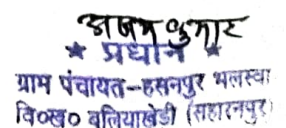 अजय कुमार
★ प्रधान ★
ग्राम पंचायत-हसनपुर भलस्वा
वि०ख० बलियाखेडी (सहारनपुर)